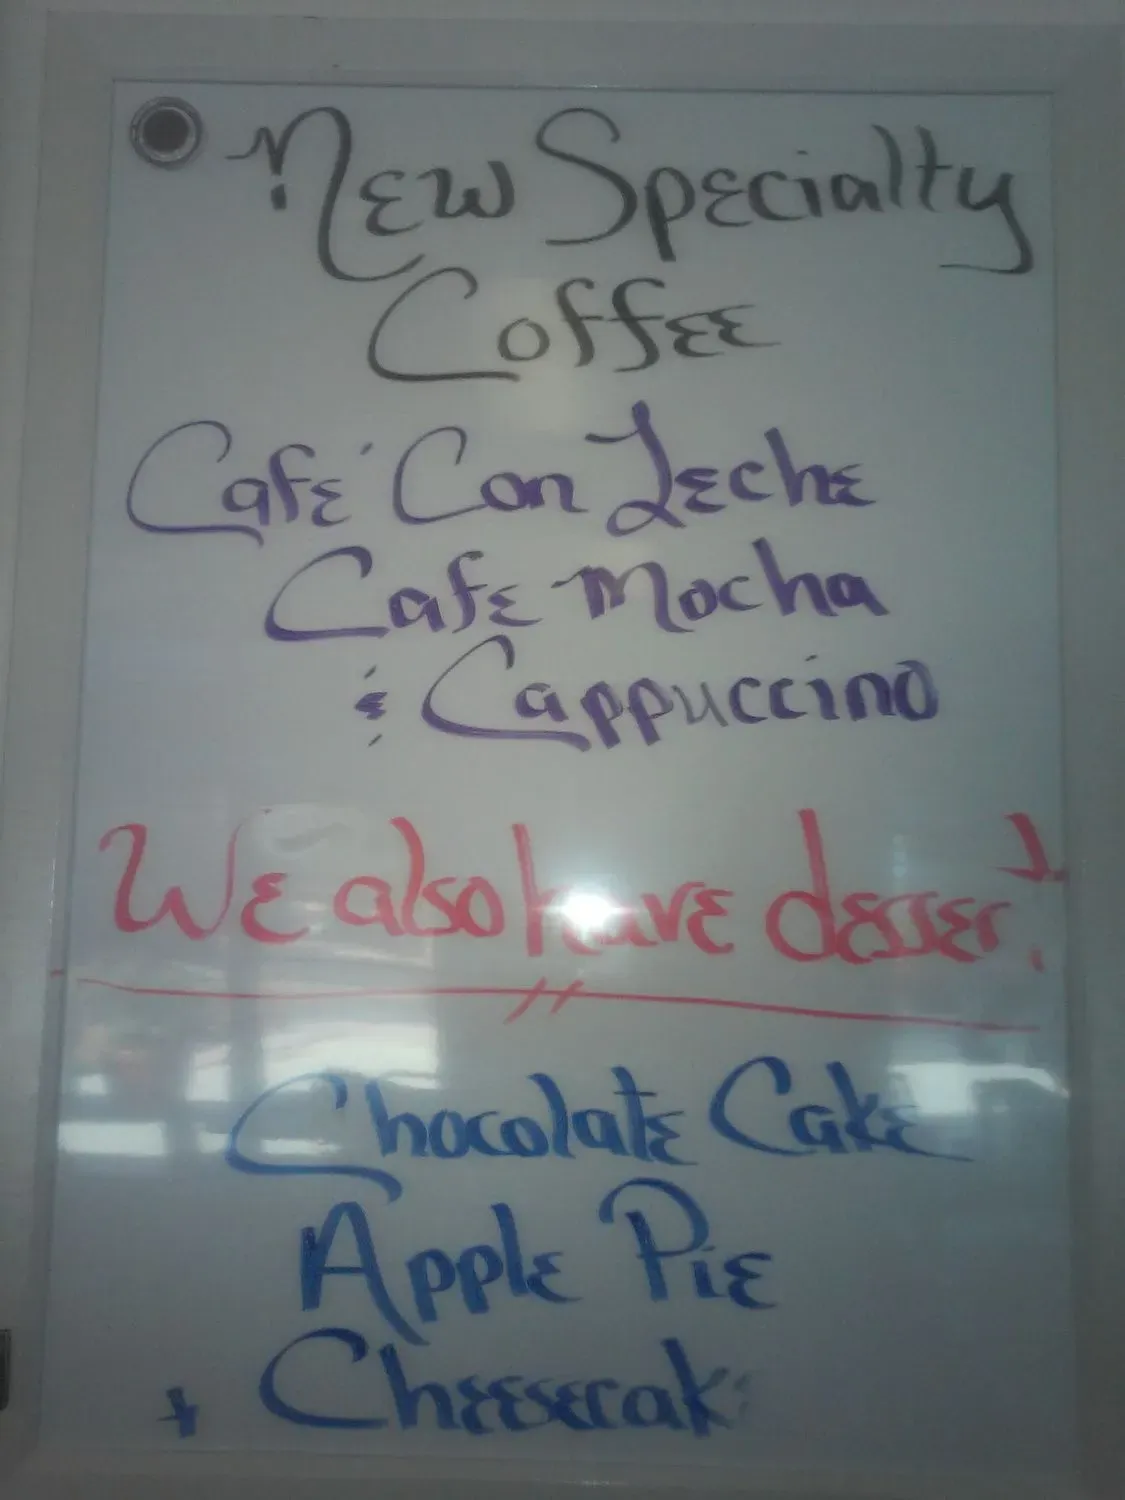 New Specialty
Coffee
Café Con Leche
Cafe Mocha
& Cappuccino
We also have dessert!
Chocolate Cake
Apple Pie
+ Cheesecak